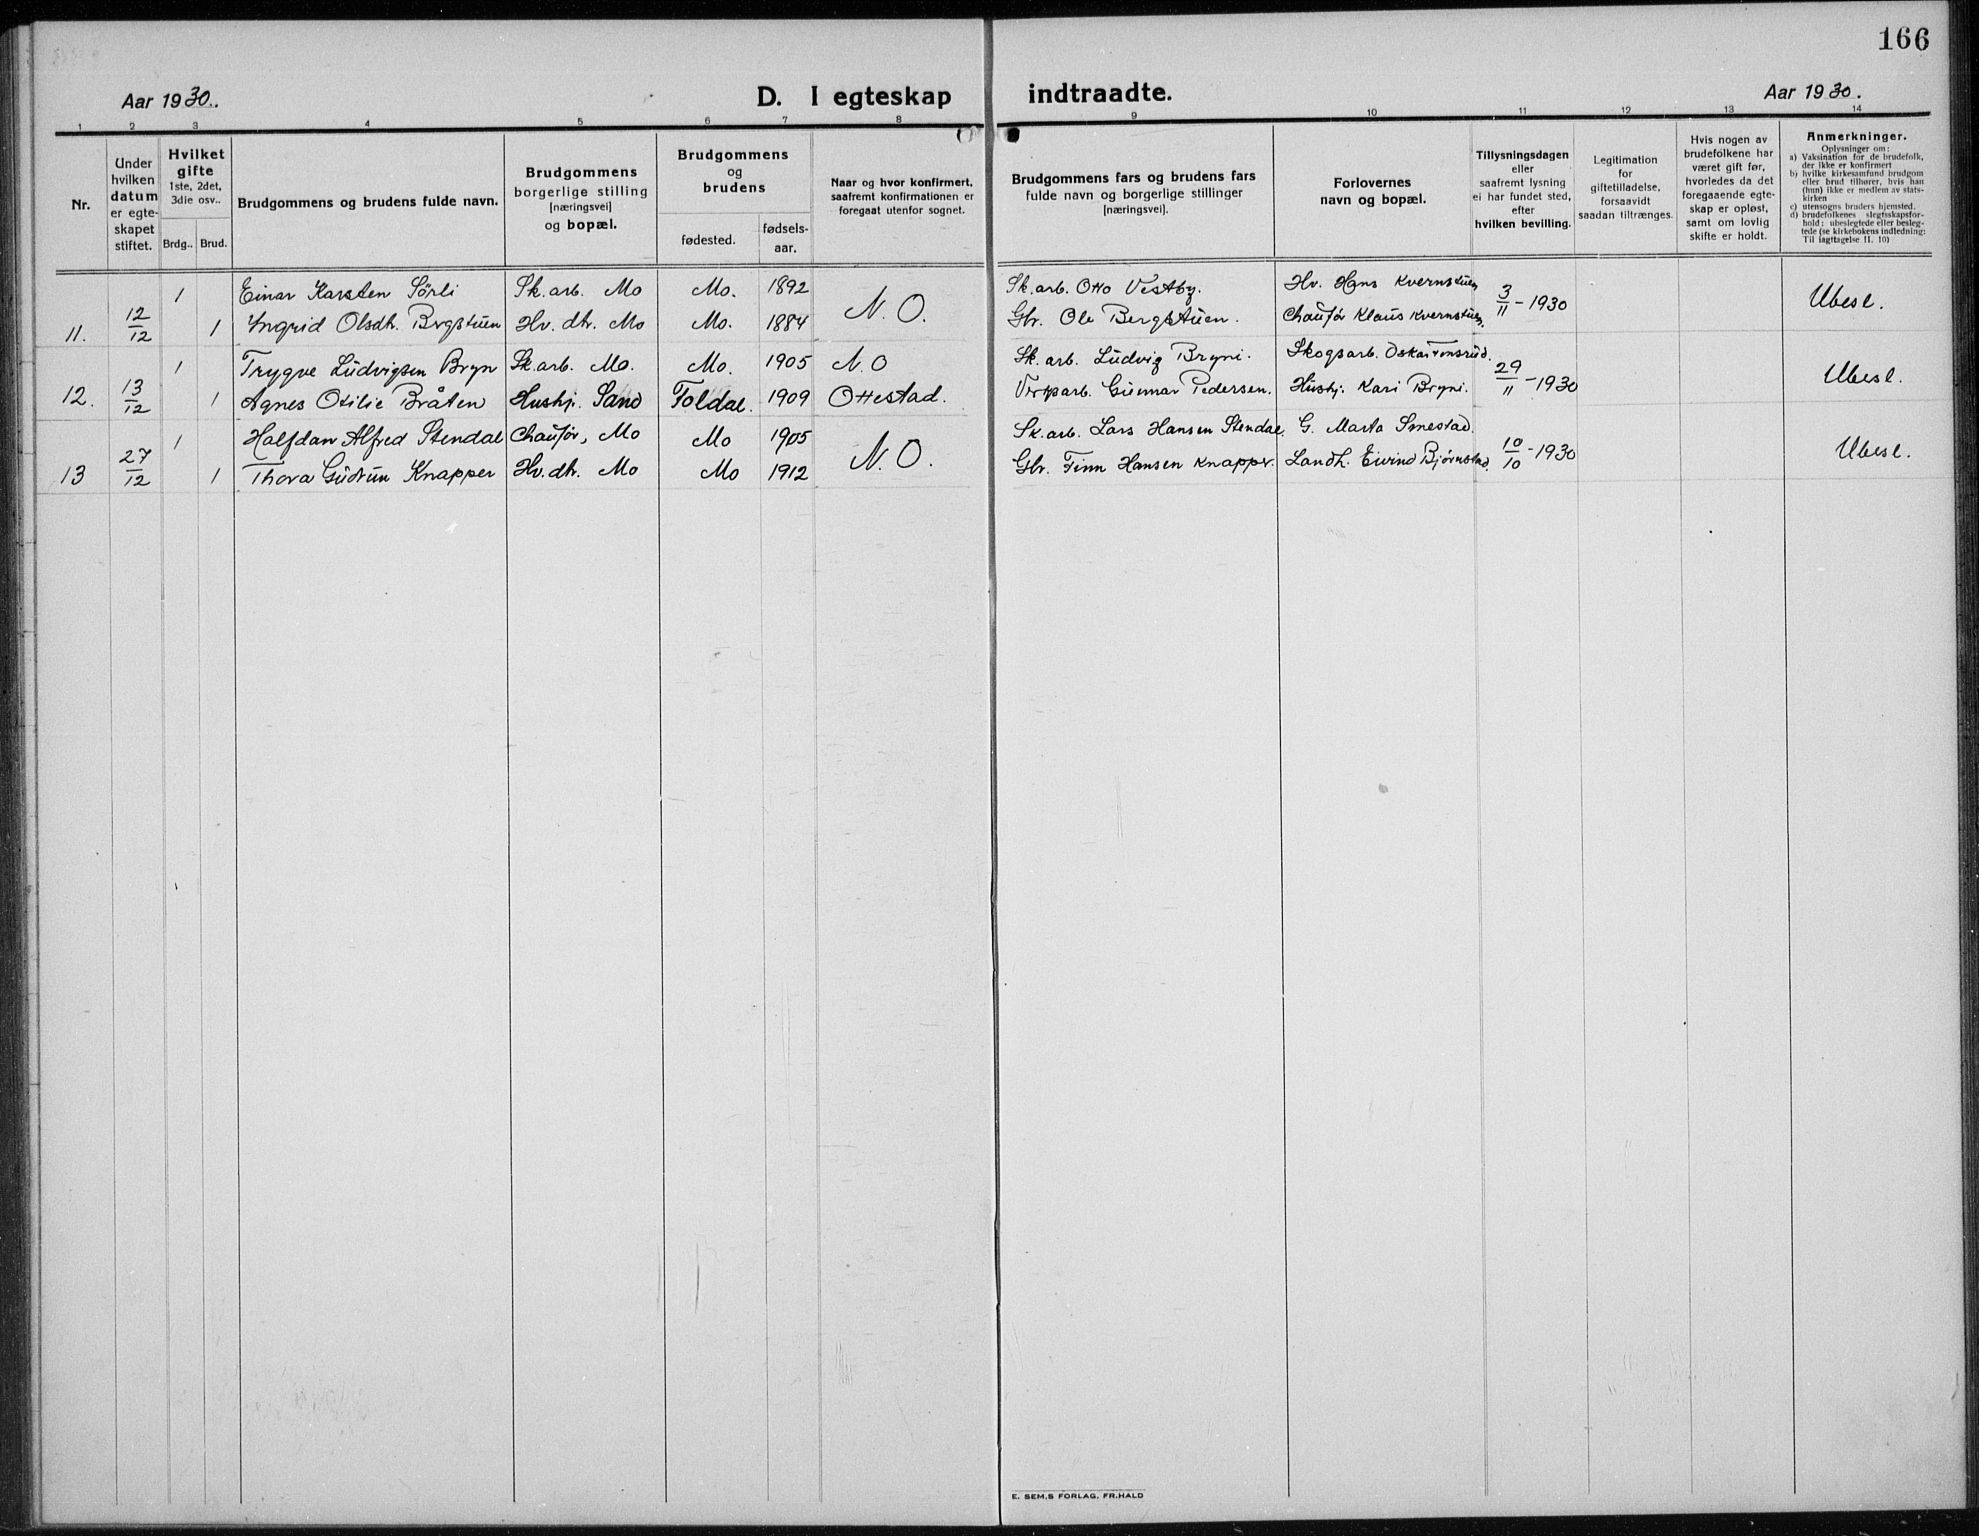 166
Aar 1930.
D. I egteskap indtraadte.
Aar 1930.
1 2 3 4 5 6 7 8 9 10 11 12 13 14
Nr.
Under
hvilken
datum
er egte-
skapet
stiftet.
Hvilket
gifte
1ste, 2det,
3die osv..
Brdg.. Brud.
Brudgommens og brudens fulde navn.
Brudgommens
borgerlige stilling
[næringsvei]
og bopæl.
Brudgommens
og
brudens
fødested.
fødsels-
aar.
Naar og hvor konfirmert,
saafremt konfirmationen er
foregaat utenfor sognet.
Brudgommens fars og brudens fars
fulde navn og borgerlige stillinger
[næringsvei].
Forlovernes
navn og bopæl.
Tillysningsdagen
eller
saafremt lysning
ei har fundet sted,
efter
hvilken bevilling.
Legitimation
for
giftetilladelse,
forsaavidt
saadan tiltrænges.
Hvis nogen av
brudefolkene har
været gift før,
hvorledes da det
foregaaende egte-
skap er opløst,
samt om lovlig
skifte er holdt.
Anmerkninger.
Oplysninger om:
a) Vaksination for de brudefolk,
der ikke er konfirmert
b) hvilke kirkesamfund brudgom
eller brud tilhører, hvis han
(hun) ikke er medlem av stats-
kirken
c) utensogns bruders hjemsted.
d) brudefolkenes slegtsskapsfor-
hold: ubeslegtede eller besleg-
tede (se kirkebokens indledning:
Til iagttagelse II. 10)
1 Einar Karsten Sörli Sk. arb. Mo Mo. 1892 N. O. Sk. arb. Otto Vestby. Hv. Hans Kvernstuen 3/11 - 1930 Ubesl.
11. 12/12 1 Yngrid Olsdt. Bergstuen Hv. dtr. Mo Mo. 1884 Gbr. Ole Bergstuen. Chaufør Klaus Kvernstuen.
1 Trygve Ludvigsen Bryn Sk. arb. Mo. Mo. 1905 N. O Sk. arb. Ludvig Bryni. Skogsarb. Oskar 29/11 - 1930 Ubesl.
12. 13/12 1 Agnes Otilie Bråten Hushj. Sand Foldal. 1909 Ottestad. Gunnar Pedersen. Hushj. Kari Bryni.
1 Halfdan Alfred Stendal Chaufør, Mo Mo 1905 N. O. Sk. arb. Lars Hansen Stendal. G. Marta Smestad. 10/10 - 1930 Ubesl.
13 27/12 1 Thora Gudrun Knapper Hv. dtr. Mo Mo 1912 Gbr. Finn Hansen Knapper. Landh. Eivind Bjørnstad.
E. SEM.S FORLAG, FR.HALD